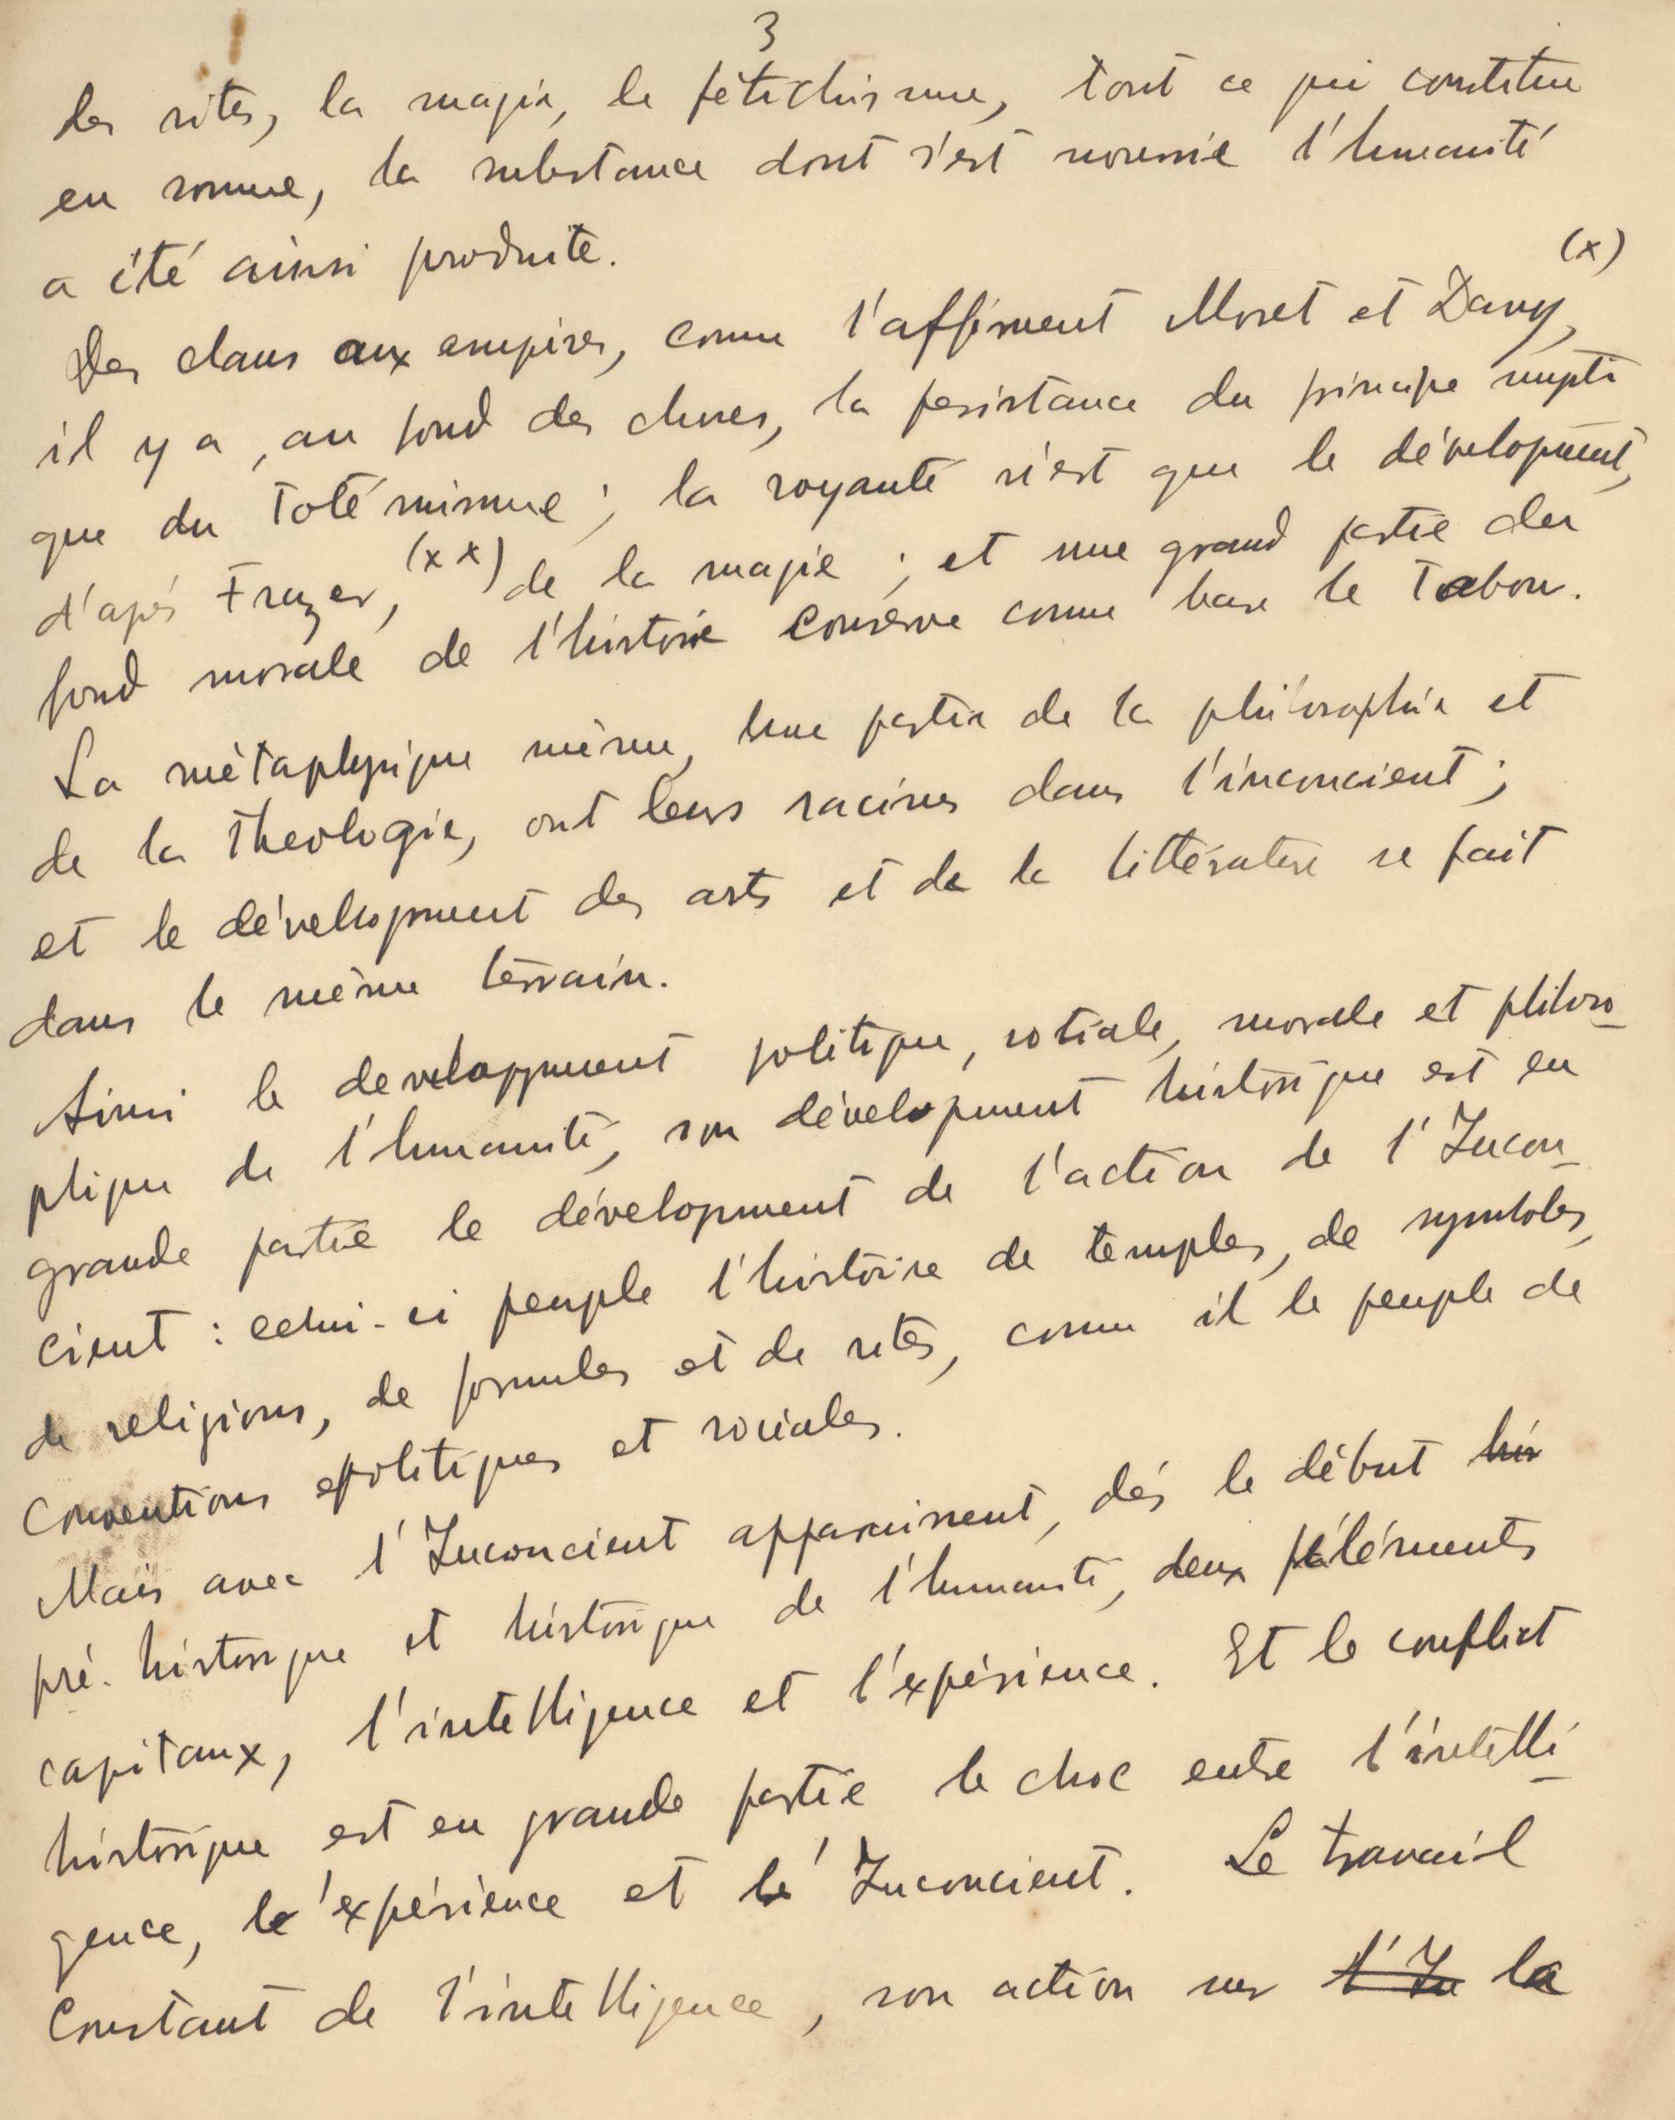 3
des rites, la magie, le fétichisme, tout ce qui constitue
en somme, la substance dont s'est nourrie l'humanité
a été ainsi produite.
(x)
Des clans aux empires, comme l'affirment Moret et Davy,
il y a, au fond des choses, la persistance du principe mysti
que du Totémisme ; la royauté n'est que le dévelopment,
d'apés Frazer, (xx) de la magie ; et une grand partie du
fond morale de l'histoire conserve comme base le Tabou.
La métaphysique même, une partie de la philosophie et
de la theologie, ont leurs racines dans l'inconcient ;
et le dévelopment des arts et de la littérature se fait
dans le même terrain.
Ainsi le developpment politique, sotiale, morale et philoso-
phique de l'humanité, son dévelopment historique est en
grande partie le dévelopment de l'action de l'Incon-
cient : celui-ci peuple l'histoire de temples, de symboles,
de religions, de formules et de rites, comme il le peuple de
conventions politiques et sociales.
Mais avec l'Inconcient apparaissent, dés le début his
pré-historique et historique de l'humanité, deux éléments
capitaux, l'intelligence et l'expérience. Et le conflict
historique est en grande partie le choc entre l'intelli-
gence, l'expérience et l'Inconcient. Le travail
constant de l'intelligence, son action sur l'In la